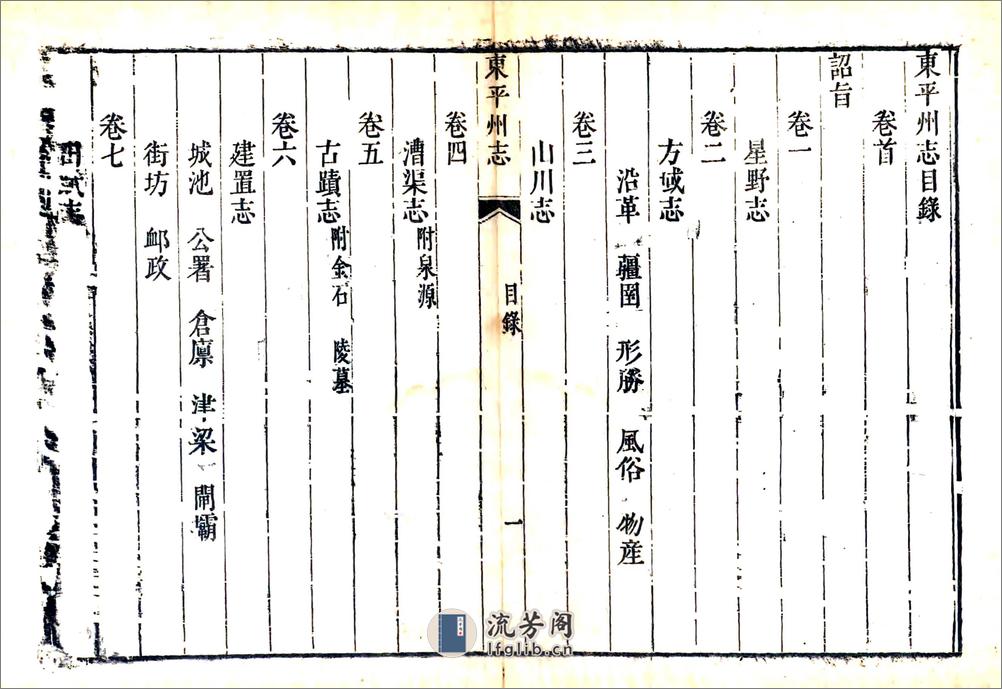 東平州志目錄
卷首
詔旨
卷一
星野志
卷二
方域志
沿革 疆圉 形勝 風俗 物産
卷三
山川志
東平州志 目錄 一
卷四
漕渠志 附泉源
卷五
古蹟志 附金石 陵墓
卷六
建置志
城池 公署 倉廪 津梁 閘壩
街坊 邮政
卷七
田賦志
流芳阁
lfglib.cn